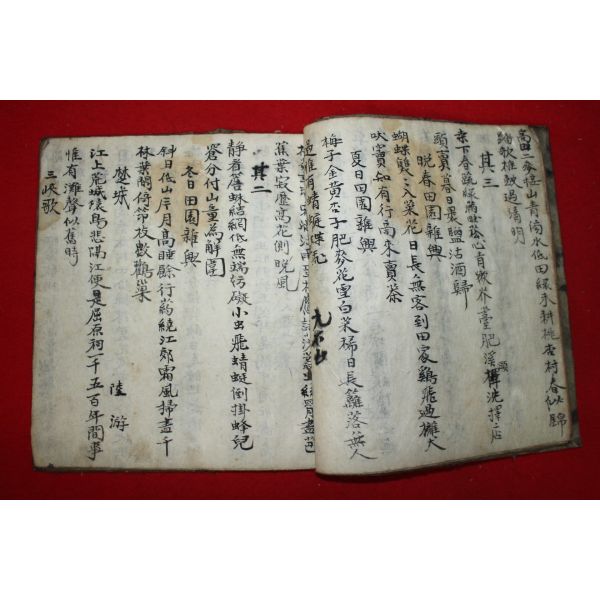 高田二麥接山青傍水低田綠未耕桃杏村春似錦
踏歌椎鼓過清明
其三
桑下春蔬綠滿畦菘心青嫩芥薹肥溪頭洗擇店
頭賣日暮裹鹽沽酒歸
晚春田園雜興
蝴蝶雙々入菜花日長無客到田家鷄飛過籬犬
吠竇知有行商來賣茶
夏日田園雜興
梅子金黃杏子肥麥花雪白菜稀日長籬落無人
惟有蜻蜓
葉寂歷高花側晩風
其二
靜看簷蛛結網低無端妨礙小虫飛蜻蜓倒掛蜂兒
窘分付山童為解圍
冬日田園雜興
斜日低山片月高睡餘行葯繞江郊霜風掃盡千
林葉閒倚筇枝數鸛巢
楚城 陸游
江上荒城猿鳥悲隔江便是屈原祠一千五百年間事
惟有灘聲似舊時
三峽歌